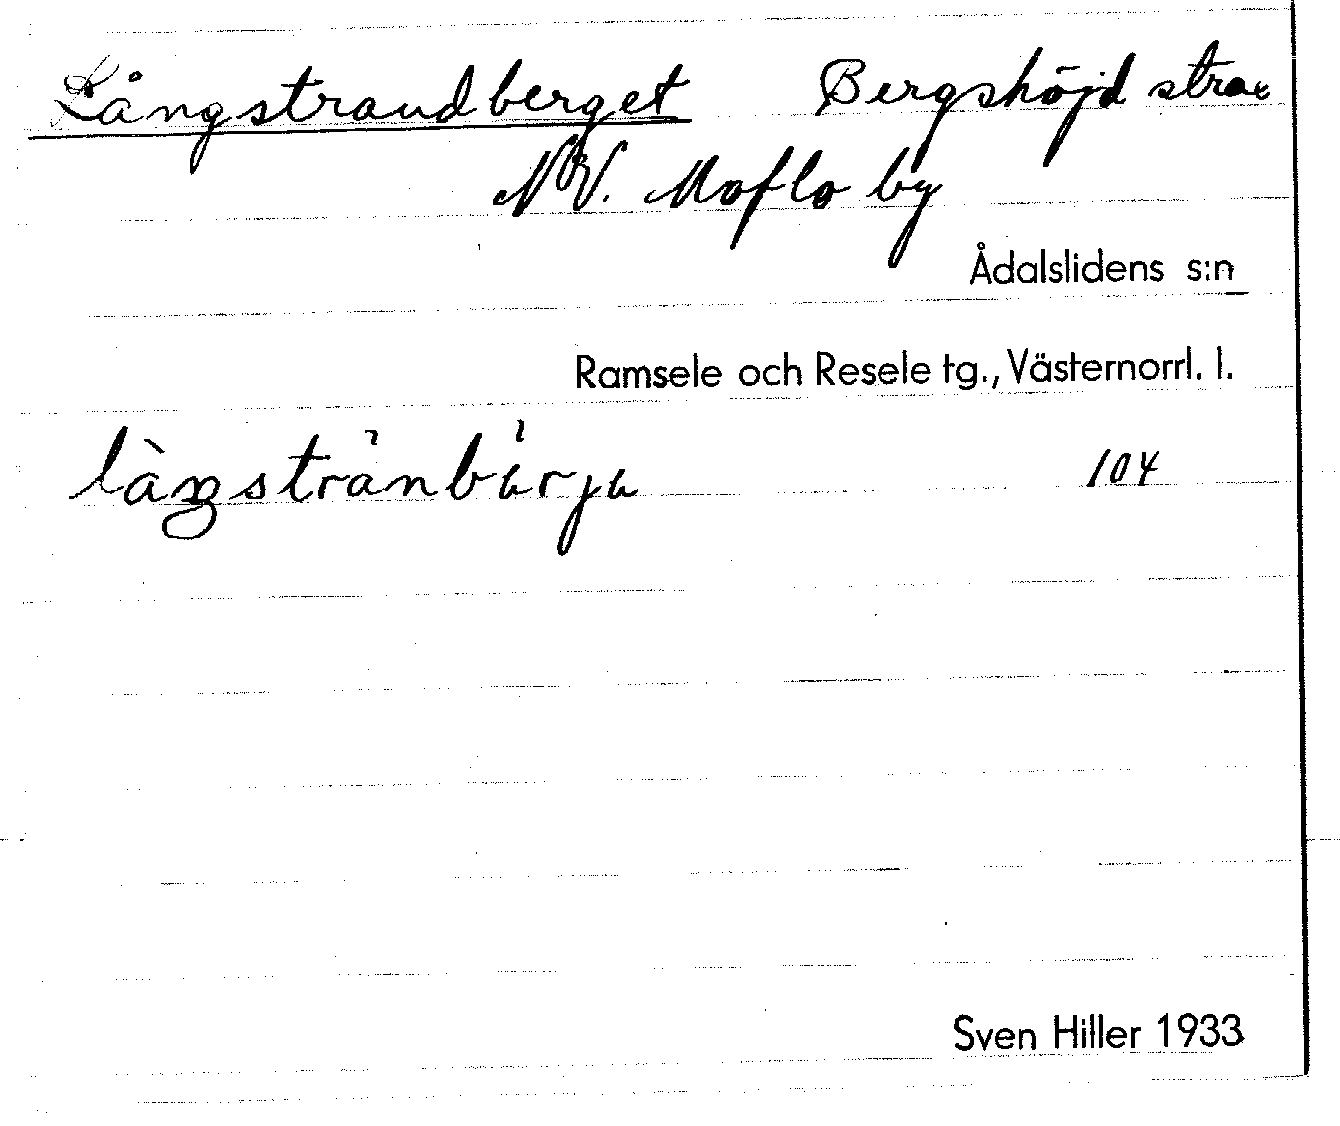 Långstrandberget Bergshöjd strax
NV. Moflo by
Ådalslidens s:n
Ramsele och Resele tg., Västernorrl. l.
104
Sven Hiller 1933